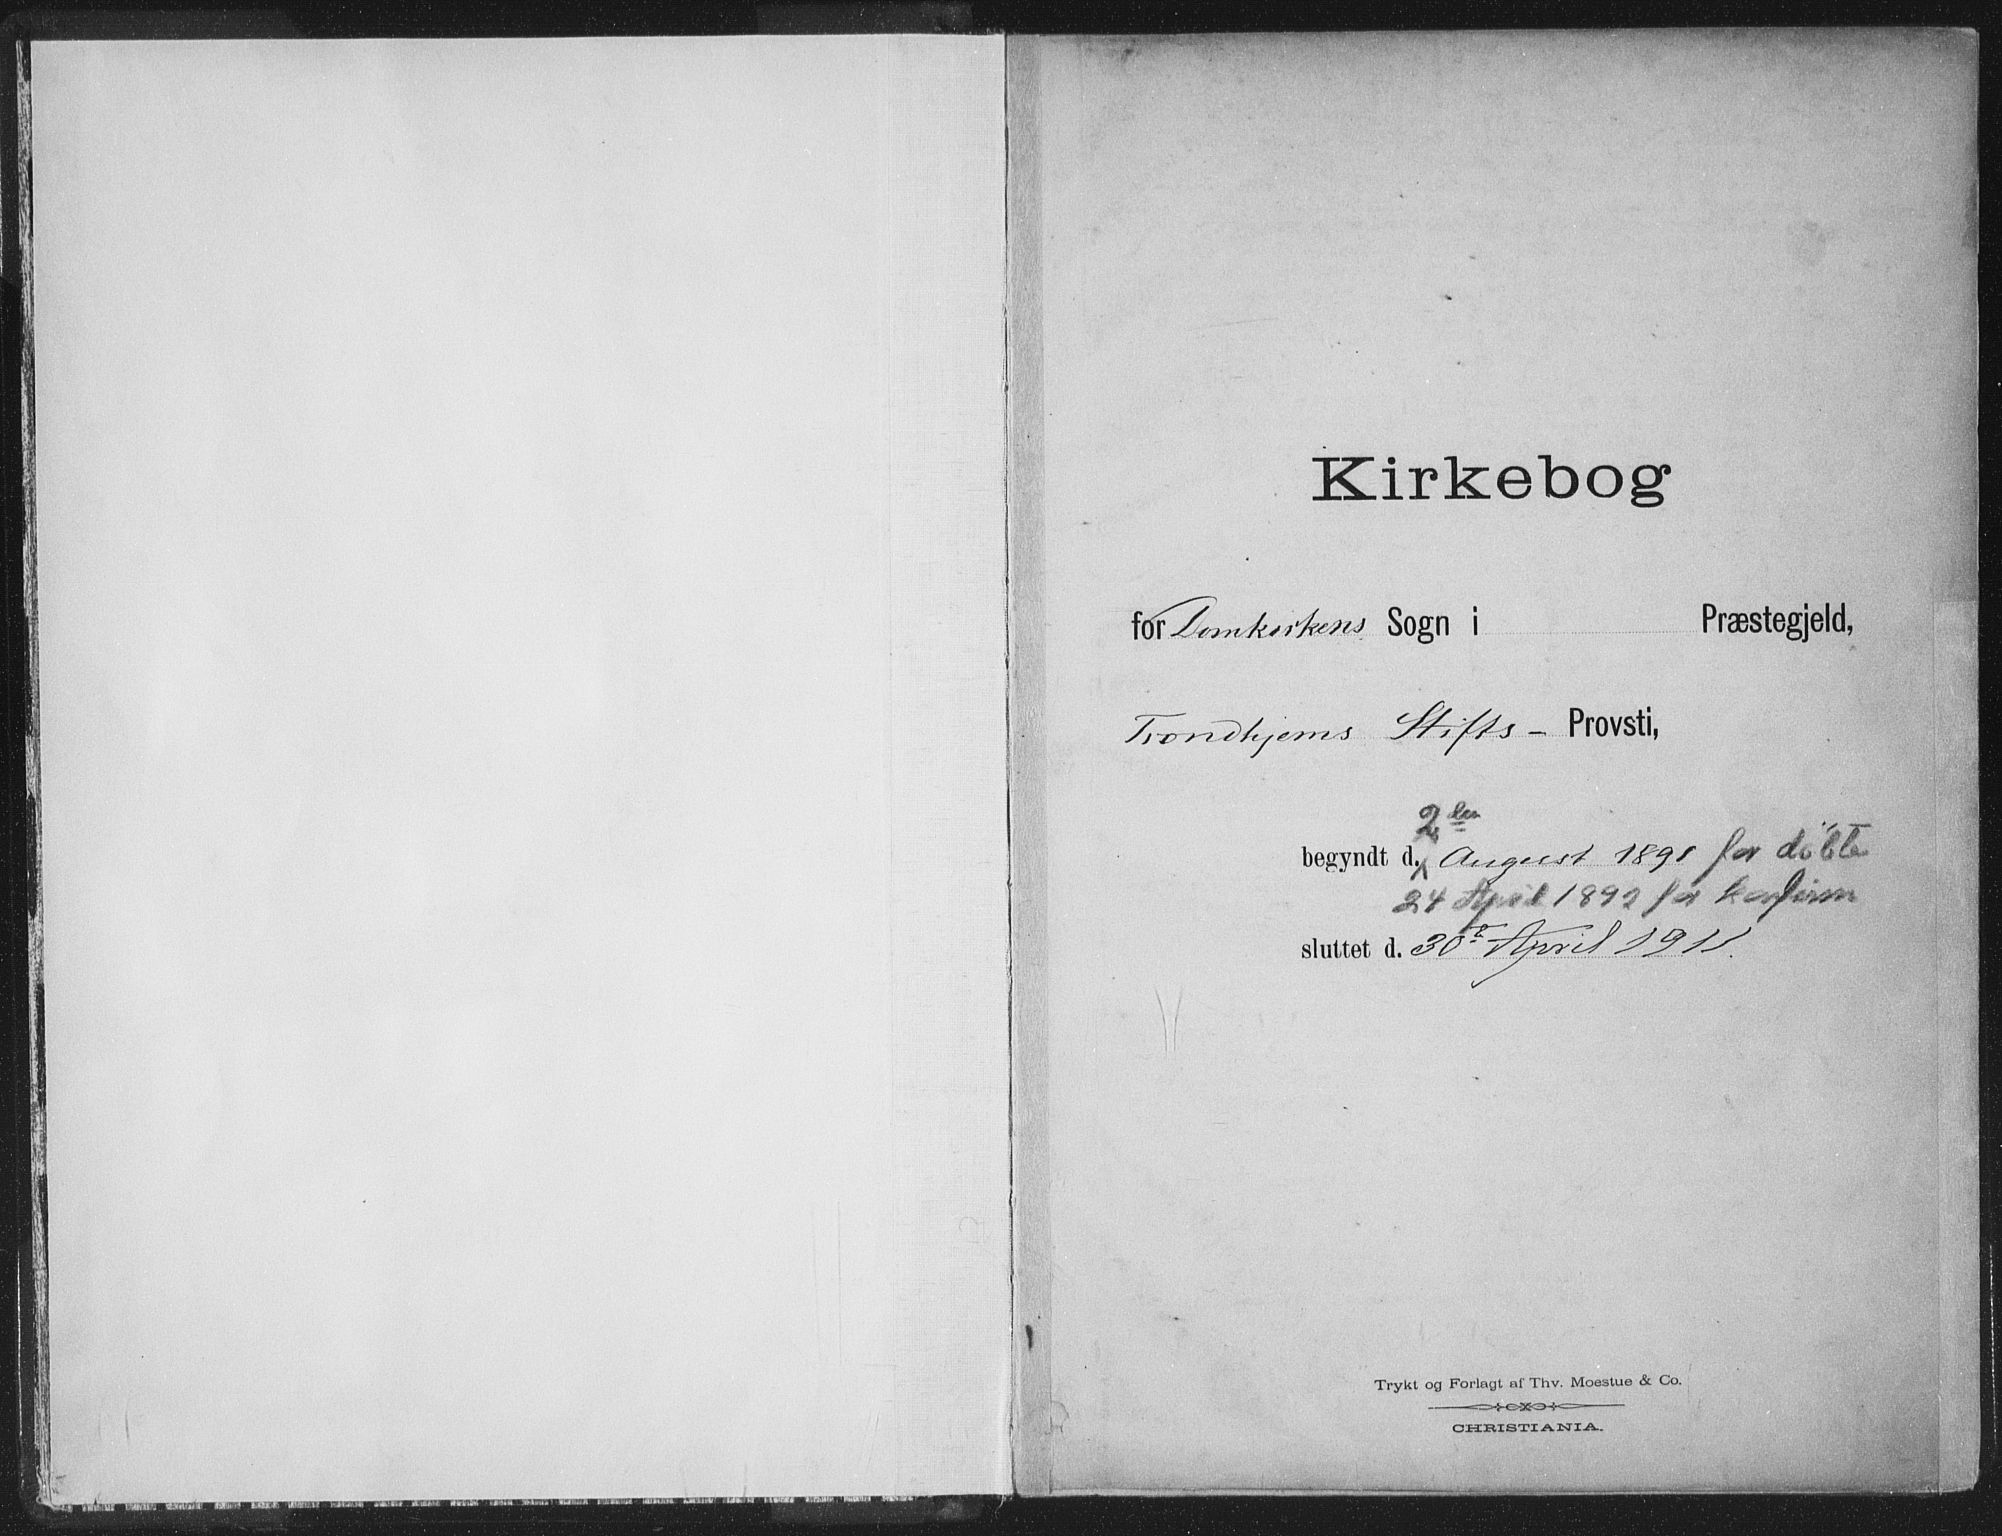 Kirkebog
for Domkirkens Sogn i Præstegjeld,
Trondhjems Stifts - Provsti,
2den
begyndt d. August 1891 for döbte
24 April 1892 for konfirm
sluttet d. 30te April 1911.
Trykt og Forlagt af Thv. Moestue & Co.
CHRISTIANIA.